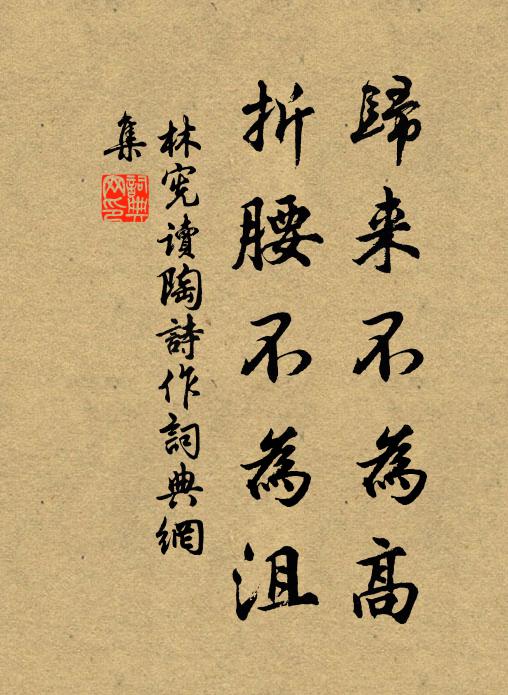 歸来不為高
折腰不為沮
林宪讀陶詩作詞典網
集
詞典
網印